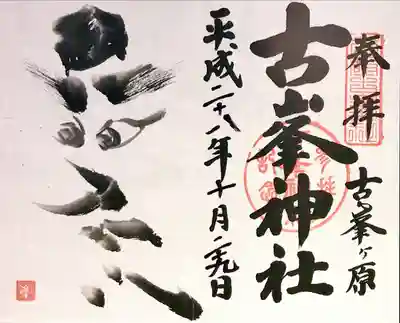 奉拝
古峯ヶ原
古峯神社
平成二十八年十月二九日